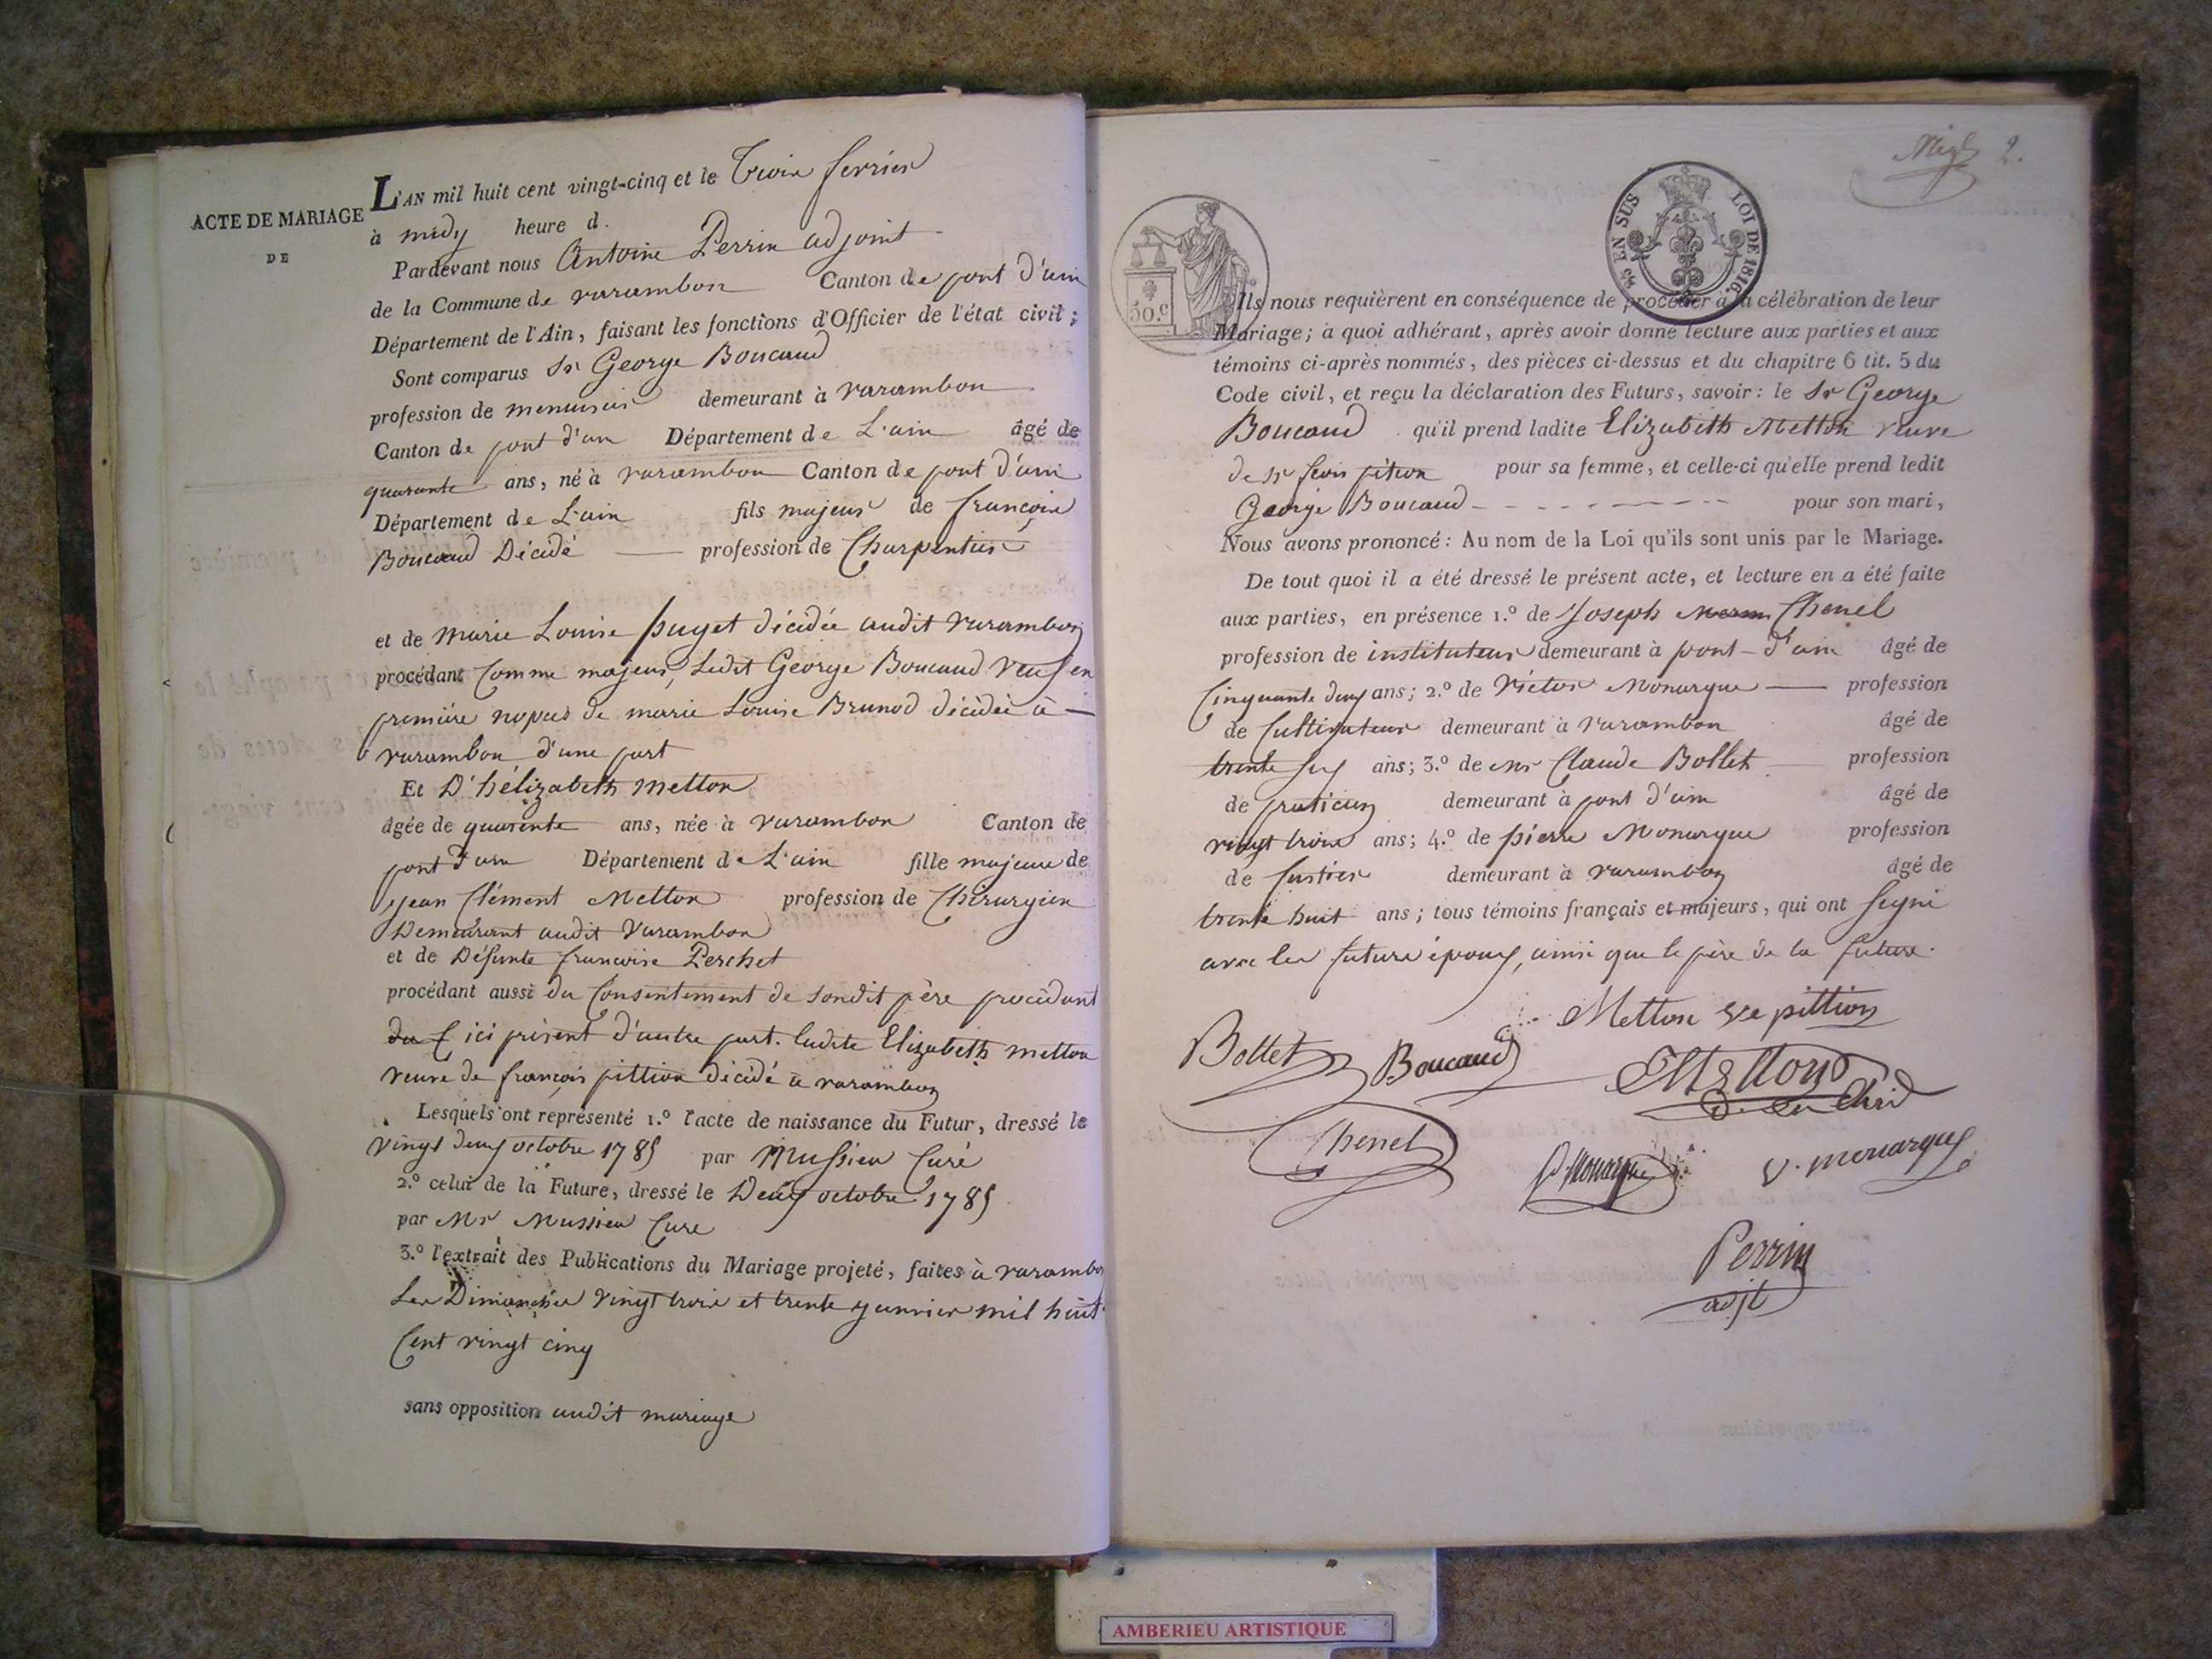 ACTE DE MARIAGE
DE
L'AN mil huit cent vingt-cinq et le Trois fevrier
à midy heure d.
Pardevant nous Antoine Perrin adjoint
de la Commune de varambon Canton de pont d'ain
Département de l'Ain, faisant les fonctions d'Officier de l'état civil;
Sont comparus Sr George Boucaud
profession de menuisier demeurant à varambon
Canton de pont d'ain Département de L'ain âgé de
quarante ans, né à varambon Canton de pont d'ain
Département de L'ain fils majeur de françois
Boucaud Décédé profession de Charpentier
et de marie Louise puget décédée audit varambon
procédant Comme majeur, Ledit George Boucaud veuf en
première nopces de marie Louise Brunod décédée à
varambon d'une part
Et D'hélizabeth metton
âgée de quarente ans, née à varambon Canton de
pont d'ain Département de L'ain fille majeure de
jean Clément Metton profession de Chirurgien
Demeurant audit Varambon
et de Défunte francoise Perchet
procédant aussi du Consentement de sondit père procédant
ici présent d'autre part. ladite Elizabeth metton
veuve de françois pittion décédé à varambon
Lesquels ont représenté 1.º l'acte de naissance du Futur, dressé le
vingt deux octobre 1785 par Mussieu Curé
2.º celui de la Future, dressé le Deux octobre 1785
par Mr Mussieu Cure
3.º l'extrait des Publications du Mariage projeté, faites à varambon
Les Dimanches vingt trois et trente janvier mil huit
Cent vingt cinq
sans opposition audit mariage
2.
EN SUS LOI DE 1816.
50.c
Ils nous requièrent en conséquence de procéder à la célébration de leur
Mariage; à quoi adhérant, après avoir donné lecture aux parties et aux
témoins ci-après nommés, des pièces ci-dessus et du chapitre 6 tit. 5 du
Code civil, et reçu la déclaration des Futurs, savoir: le Sr George
Boucaud qu'il prend ladite Elizabeth Metton veuve
de Sr fcois pition pour sa femme, et celle-ci qu'elle prend ledit
George Boucaud pour son mari,
Nous avons prononcé: Au nom de la Loi qu'ils sont unis par le Mariage.
De tout quoi il a été dressé le présent acte, et lecture en a été faite
aux parties, en présence 1.º de Joseph Chenel
profession de instituteur demeurant à pont-d'ain âgé de
Cinquante deux ans; 2.º de Victor Monarque profession
de Cultivateur demeurant à varambon âgé de
trente six ans; 3.º de Mr Claude Bollet profession
de praticien demeurant à pont d'ain âgé de
vingt trois ans; 4.º de pierre Monarque profession
de demeurant à varambon âgé de
trente huit ans; tous témoins français et majeurs, qui ont signé
avec les futurs époux, ainsi que le père de la future.
Metton ve pittion
Bollet Boucaud Metton
Chenel P. Monarque V. monarque
Perrin
adjt
AMBERIEU ARTISTIQUE